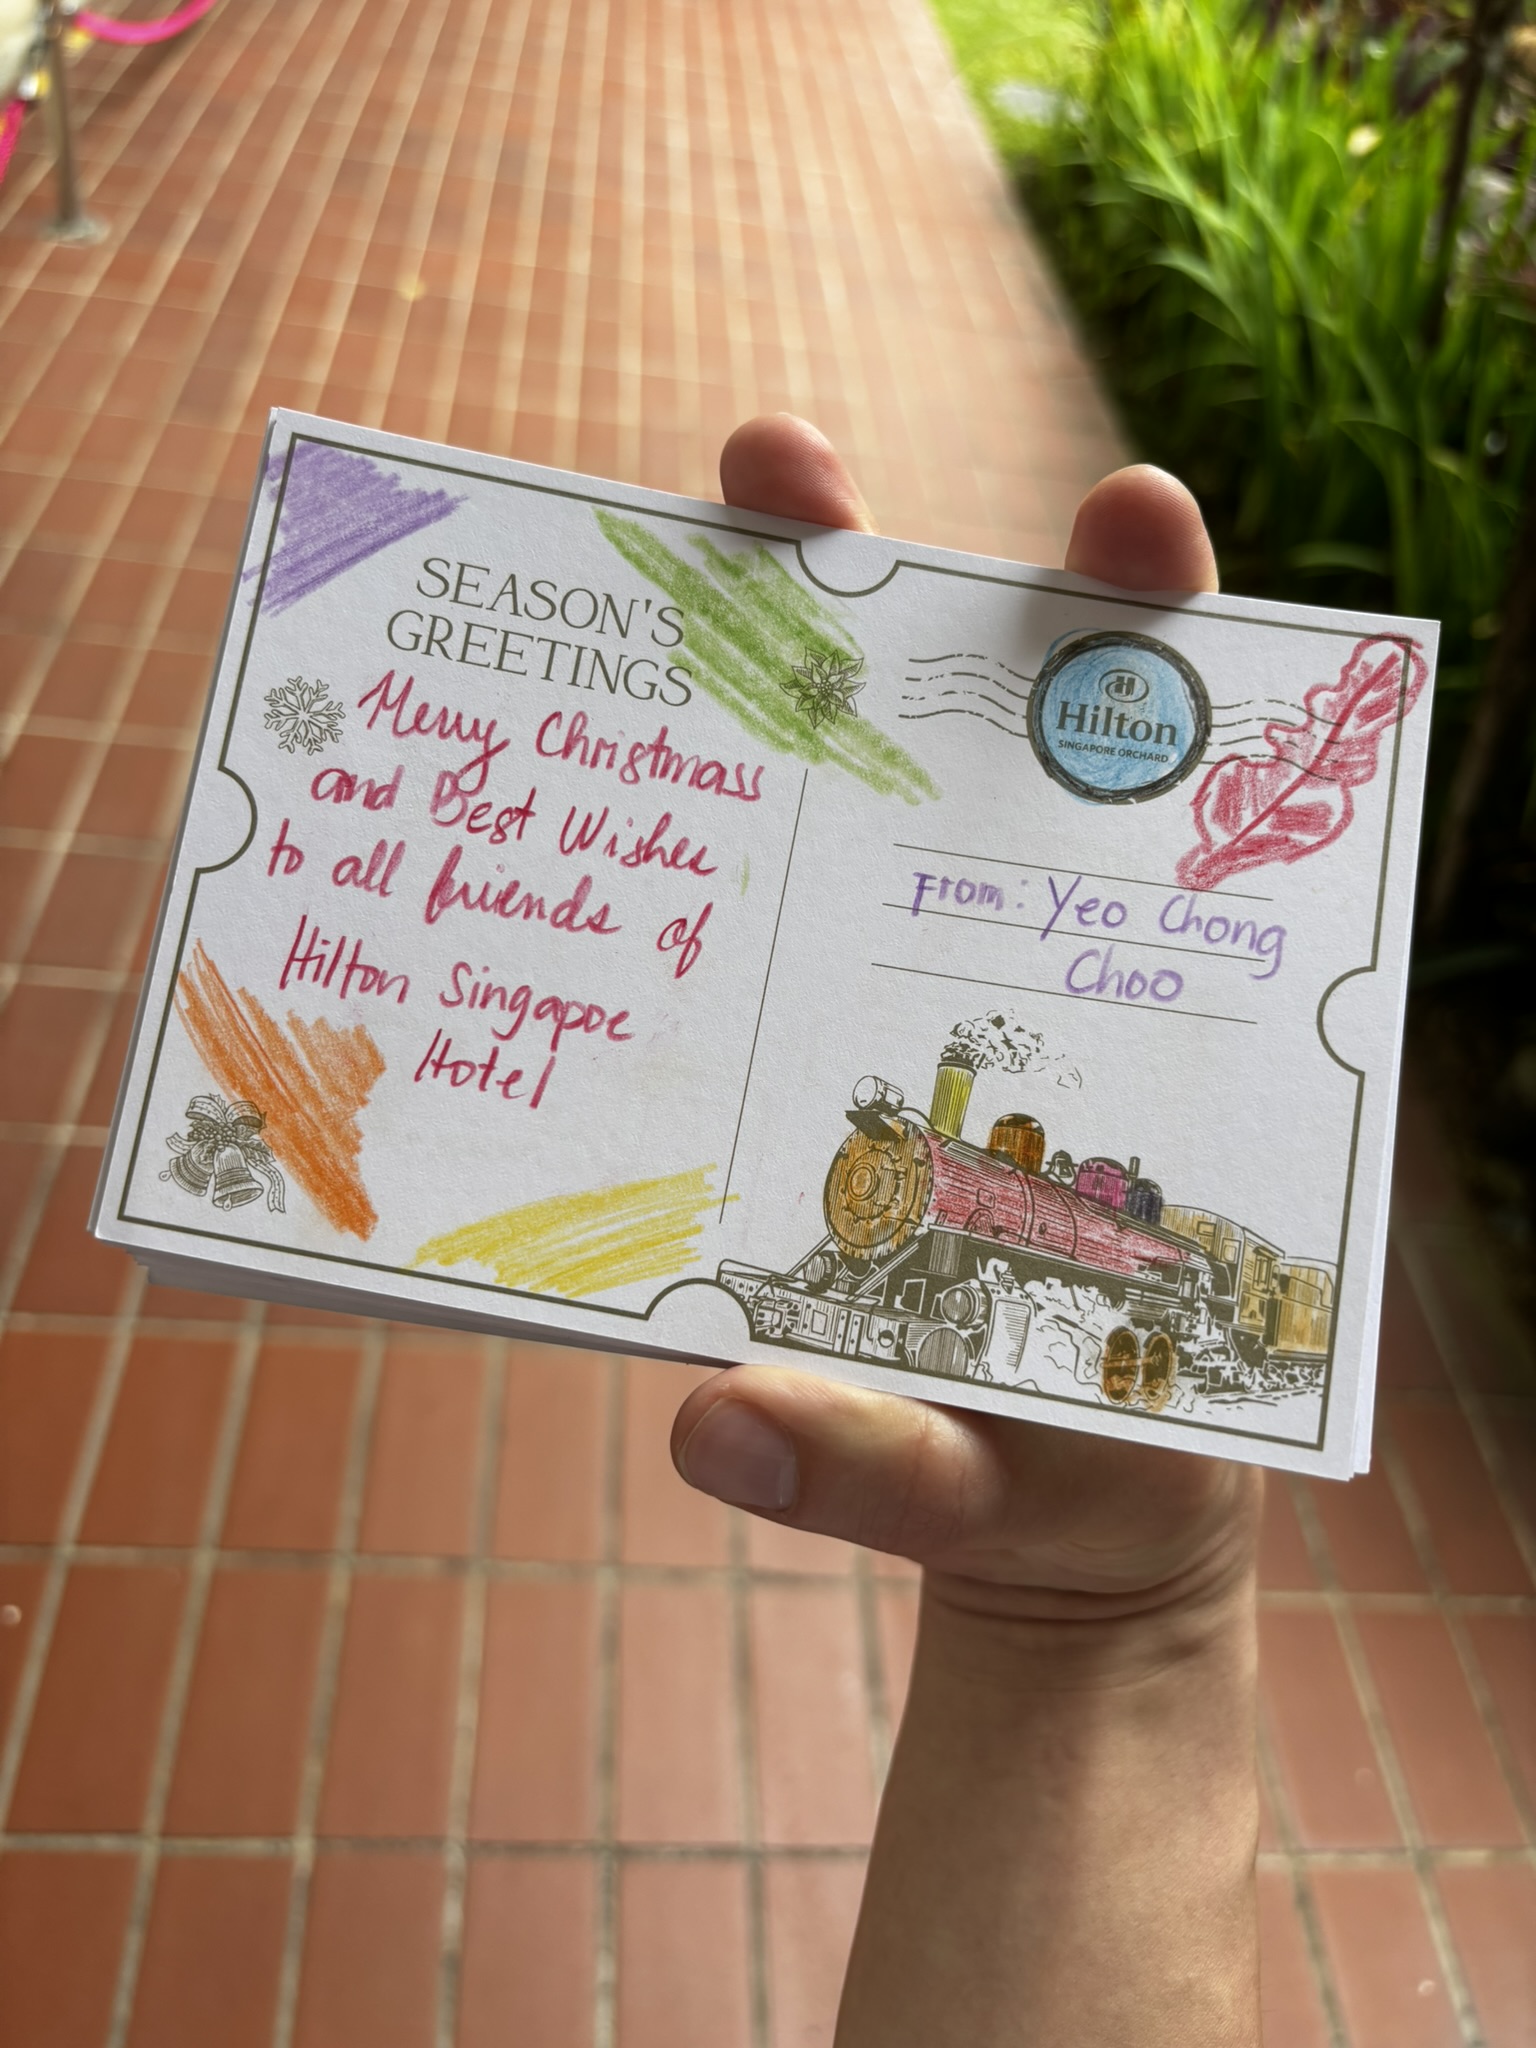 SEASON'S
GREETINGS
Merry Christmass
and Best Wishes
to all friends of
Hilton Singapoe
Hotel
H
Hilton
SINGAPORE ORCHARD
From: Yeo Chong
Choo